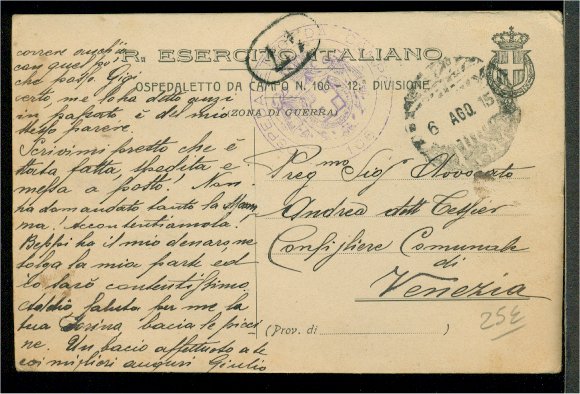 R. ESERCITO ITALIANO
OSPEDALETTO DA CAMPO N. 106 - 12ª DIVISIONE
(ZONA DI GUERRA)
6 AGO. 15
correre anche
con quel po'
che posso. Gigi
verrà, me lo ha detto anzi
in passato, è del mio
stesso parere.
Scrivimi presto che è
stata fatta, spedita e
messa a posto. Non
ha domandato tanto la Mam
ma! Accontentiamola.
Beppi ha il mio denaro, ne
tolga la mia parte ed
io sarò contentissimo.
Addio saluta per me la
tua Dorina, bacia le picci
ne. Un bacio affettuoso a te
coi migliori auguri Giulio
Preg.mo Sig. Avvocato
Andrea
Consigliere Comunale
di
Venezia
(Prov. di )
25£